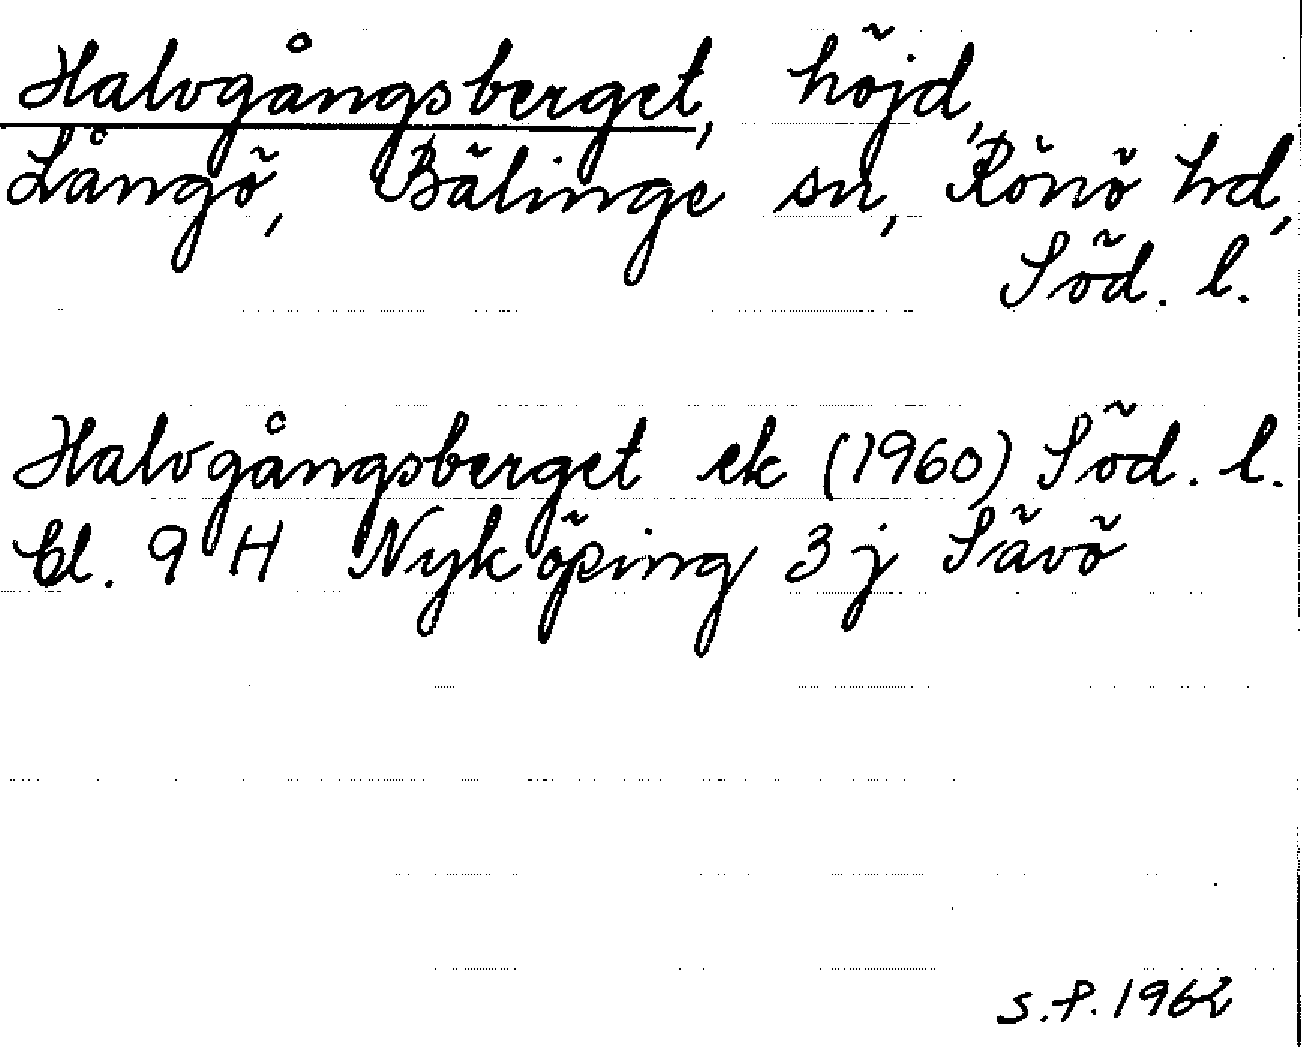 Halvgångsberget, höjd,
Långö, Bälinge sn, Rönö hd,
Söd. l.
Halvgångsberget ek (1960) Söd. l.
bl. 9 H Nyköping 3 j Sävö
S.P. 1962